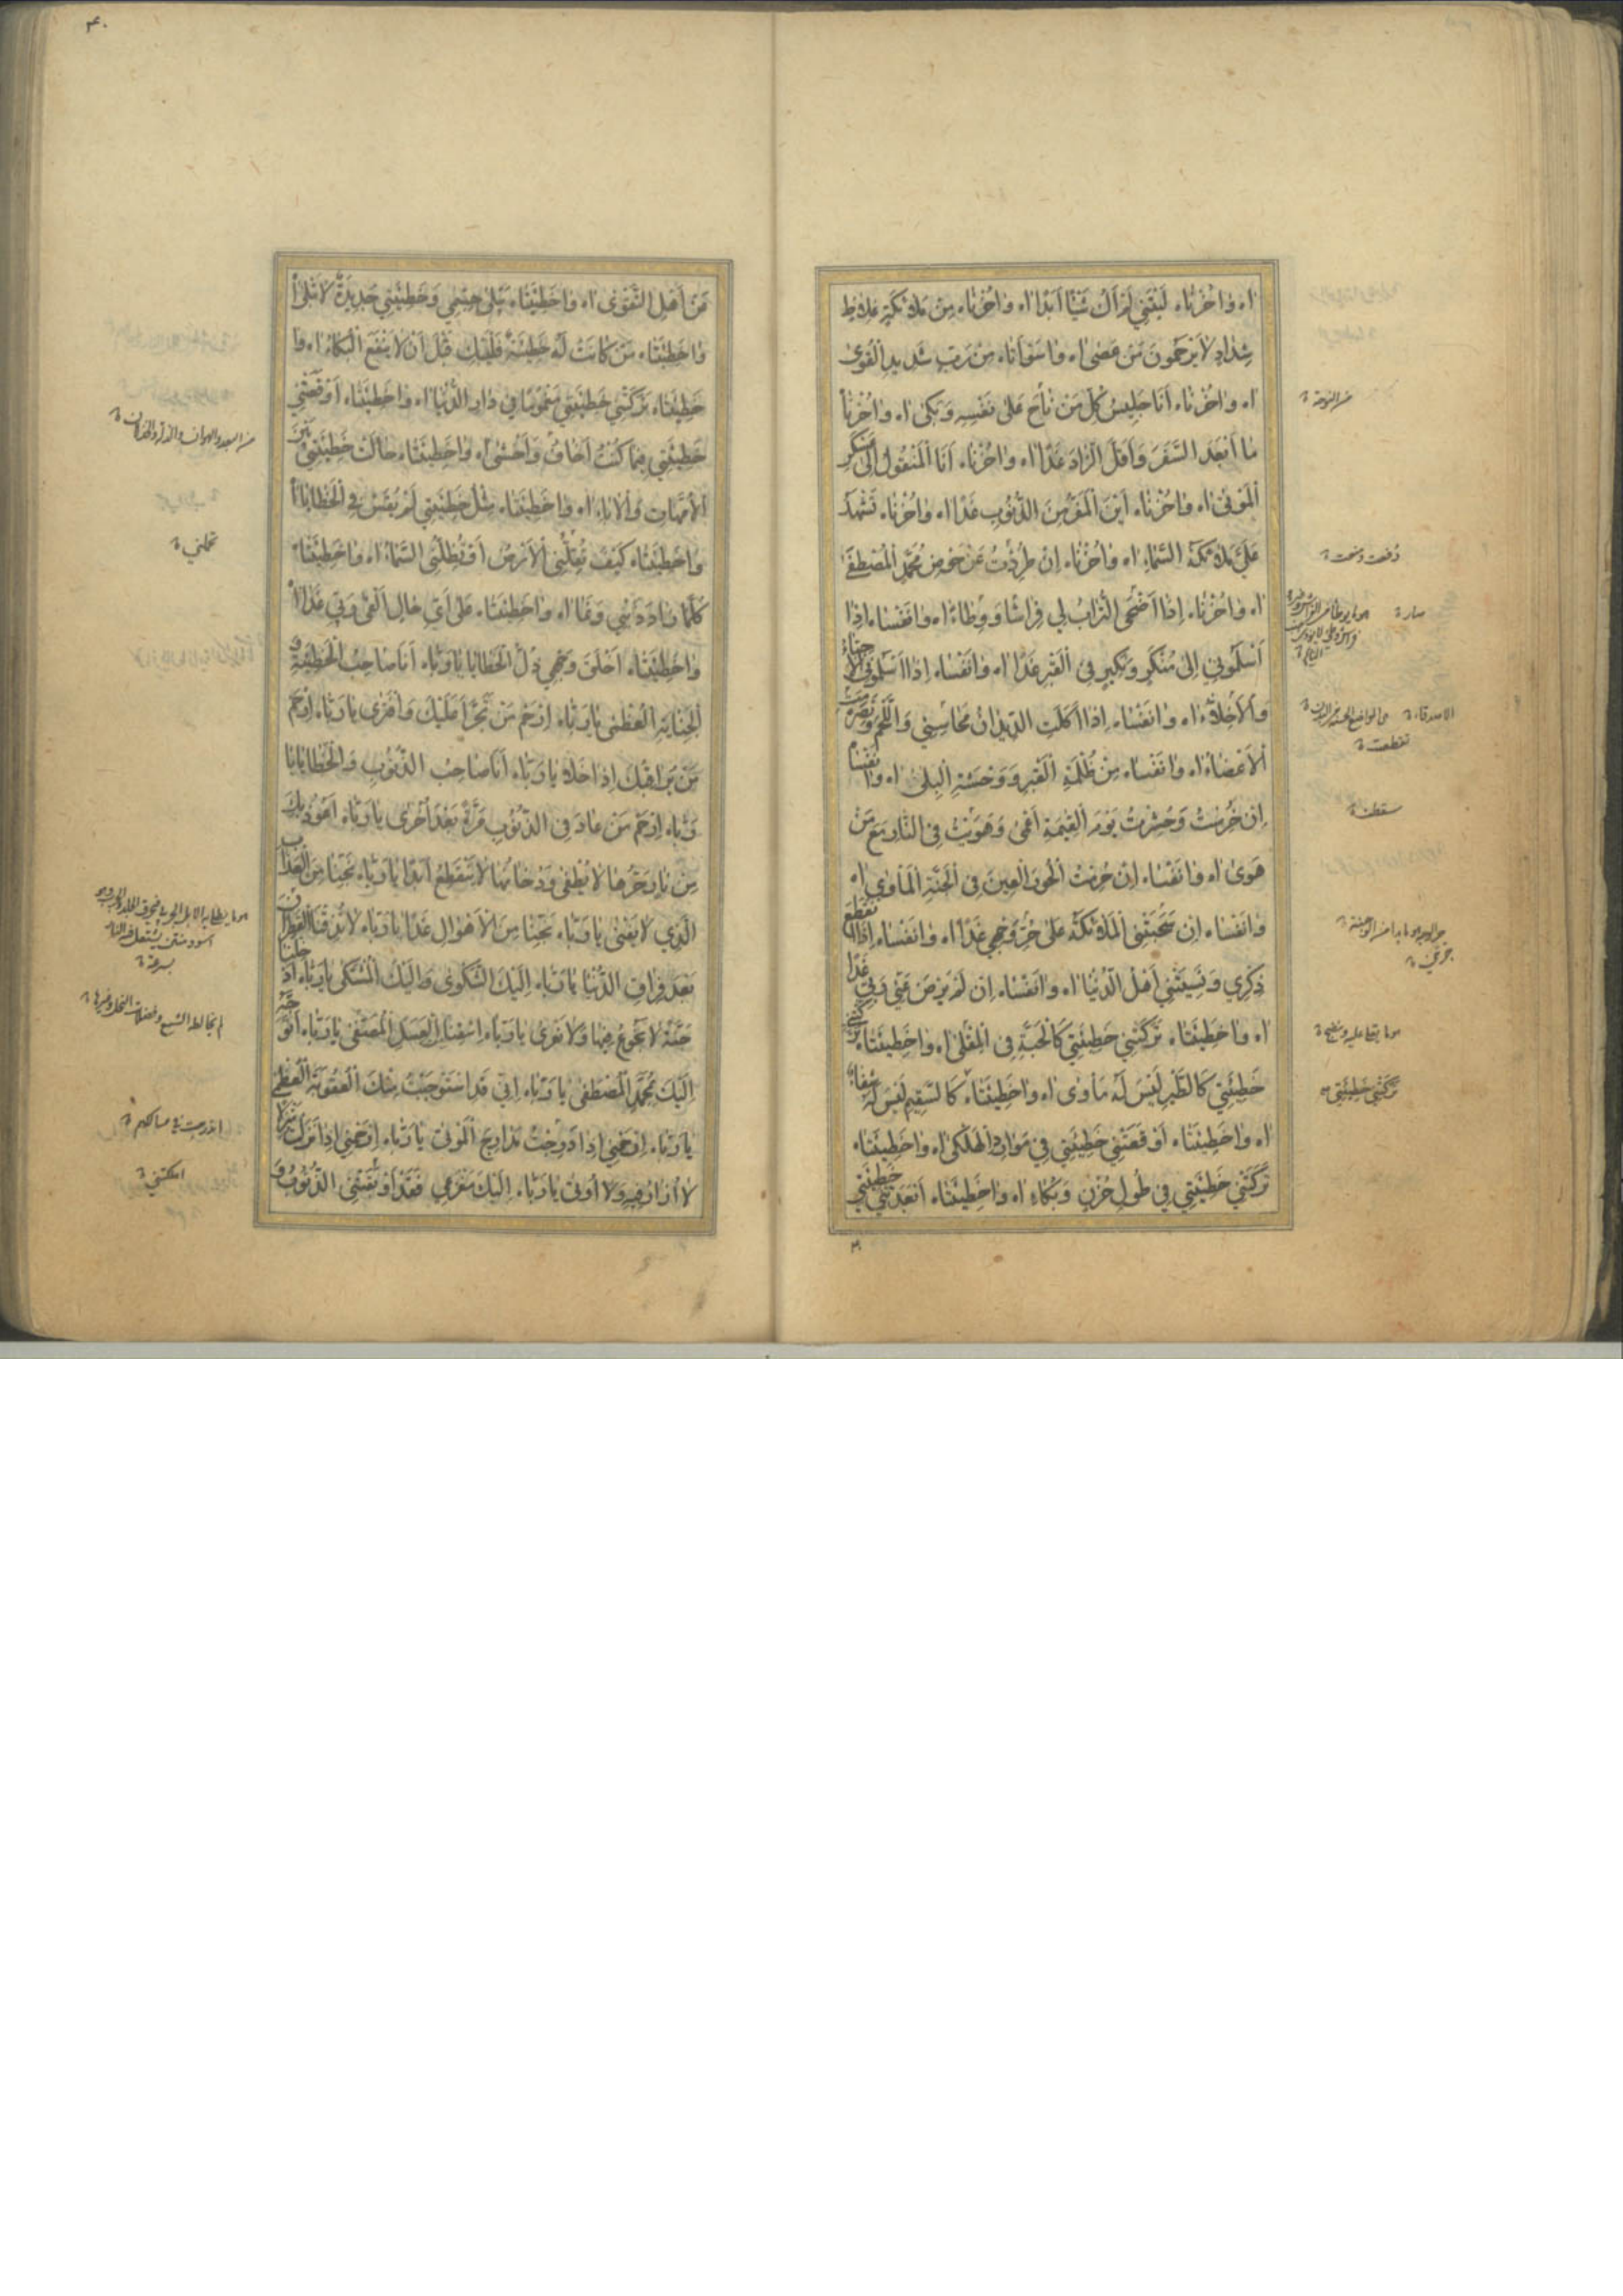 اٰه وٰاحُزْنٰاه لَيْتَنِي لَمْ اَكُ شَيْئًا اَبَدًا اٰه وٰاحُزْنٰاه مِنْ مَلاٰئِكَةٍ غِلاٰظٍ
شِدٰادٍ لاٰ يَرْحَمُونَ مَنْ عَصٰى اٰه وٰاسَوْاَتٰاه مِنْ رَبٍّ شَدِيدِ الْقُوىٰ
اٰه وٰاحُزْنٰاه اَنَا جَلِيسُ كُلِّ مَنْ نٰاحَ عَلىٰ نَفْسِهِ وَبَكىٰ اٰه وٰاحُزْنٰاه
مٰا اَبْعَدَ السَّفَرَ وَاَقَلَّ الزّٰادَ غَدًا اٰه وٰاحُزْنٰاه اَنَا الْمَنْقُولُ اِلىٰ عَسْكَرِ
الْمَوْتىٰ اٰه وٰاحُزْنٰاه اَيْنَ الْمَفَرُّ مِنَ الذُّنُوبِ غَدًا اٰه وٰاحُزْنٰاه تَشْهَدُ
عَلَيَّ مَلاٰئِكَةُ السَّمٰاءِ اٰه وٰاحُزْنٰاه اِنْ طُرِدْتُ عَنْ حَوْضِ مُحَمَّدٍ الْمُصْطَفىٰ
اٰه وٰاحُزْنٰاه اِذٰا اَضْحَى التُّرٰابُ لِي فِرٰاشًا وَوِطٰاءً اٰه وٰانَفْسٰاه اِذٰا
اَسْلَمُونِي اِلىٰ مُنْكَرٍ وَنَكِيرٍ فِي الْقَبْرِ غَدًا اٰه وٰانَفْسٰاه اِذٰا اَسْلَمُونِي الْاَحِبّٰاءُ
وَالْاَخِلاّٰءُ اٰه وٰانَفْسٰاه اِذٰا اَكَلَتِ الدِّيدٰانُ مَحٰاسِنِي وَاللَّحْمَ وَتَصَرَّمَتْ
الْاَعْضٰاءُ اٰه وٰانَفْسٰاه مِنْ ظُلْمَةِ الْقَبْرِ وَوَحْشَةِ الْبِلىٰ اٰه وٰانَفْسٰاه
اِنْ حُرِمْتُ وَحُشِرْتُ يَوْمَ الْقِيٰمَةِ اَعْمىٰ وَهَوَيْتُ فِي النّٰارِ مَعَ مَنْ
هَوىٰ اٰه وٰانَفْسٰاه اِنْ حُرِمْتُ الْحُورَ الْعِينَ فِي الْجَنَّةِ الْمَأْوىٰ اٰه
وٰانَفْسٰاه اِنْ سَحَبَتْنِي الْمَلاٰئِكَةُ عَلىٰ حُرِّ وَجْهِي غَدًا اٰه وٰانَفْسٰاه اِذَا انْقَطَعَ
ذِكْرِي وَنَسِيَتْنِي اَهْلُ الدُّنْيٰا اٰه وٰانَفْسٰاه اِنْ لَمْ يَرْضَ عَنِّي رَبِّي غَدًا
اٰه وٰاخَطِيئَتٰاه تَرَكَتْنِي خَطِيئَتِي كَالْحَبَّةِ فِي الْمِقْلىٰ اٰه وٰاخَطِيئَتٰاه تَرَكَتْنِي
خَطِيئَتِي كَالطَّيْرِ لَيْسَ لَهُ مَأْوىٰ اٰه وٰاخَطِيئَتٰاه كَالسَّقِيمِ لَيْسَ لَهُ شِفٰاءٌ
اٰه وٰاخَطِيئَتٰاه اَوْقَعَتْنِي خَطِيئَتِي فِي مَوٰارِدِ الْهَلْكىٰ اٰه وٰاخَطِيئَتٰاه
تَرَكَتْنِي خَطِيئَتِي فِي طُولِ حُزْنٍ وَبُكٰاءٍ اٰه وٰاخَطِيئَتٰاه اَبْعَدَتْنِي خَطِيئَتِي
من النوحة
دفعت ونحت
صار
الاصدقاء
تقطعت
سقطت
تركتني خطيئتي
٤٠
مِنْ اَهْلِ التَّقْوىٰ اٰه وٰاخَطِيئَتٰاه يَبْلىٰ جِسْمِي وَخَطِيئَتِي جَدِيدَةٌ لاٰ تَبْلىٰ اٰه
وٰاخَطِيئَتٰاه مَنْ كٰانَتْ لَهُ خَطِيئَةٌ فَلْيَبْكِ قَبْلَ اَنْ لاٰ يَنْفَعَ الْبُكٰاءُ اٰه وٰا
خَطِيئَتٰاه تَرَكَتْنِي خَطِيئَتِي مَغْمُومًا فِي دٰارِ الدُّنْيٰا اٰه وٰاخَطِيئَتٰاه اَوْقَعَتْنِي
خَطِيئَتِي فِيمٰا كُنْتُ اَخٰافُ وَاَخْشىٰ اٰه وٰاخَطِيئَتٰاه حٰالَتْ خَطِيئَتِي بَيْنَ
الْاُمَّهٰاتِ وَالْاٰبٰاءِ اٰه وٰاخَطِيئَتٰاه مِثْلُ خَطِيئَتِي لَمْ يُقَسْ فِي الْخَطٰايٰا اٰه
وٰاخَطِيئَتٰاه كَيْفَ تُقِلُّنِي الْاَرْضُ اَوْ تُظِلُّنِي السَّمٰاءُ اٰه وٰاخَطِيئَتٰاه
كُلَّمٰا زٰادَ ذَنْبِي وَنَمٰا اٰه وٰاخَطِيئَتٰاه عَلىٰ اَيِّ حٰالٍ اَلْقىٰ رَبِّي غَدًا اٰه
وٰاخَطِيئَتٰاه اَخْلَقَ وَجْهِي ذُلُّ الْخَطٰايٰا يٰا رَبّٰاه اَنَا صٰاحِبُ الْخَطِيئَةِ وَ
الْجِنٰايَةِ الْعُظْمىٰ يٰا رَبّٰاه اِرْحَمْ مَنْ تَجَرَّأَ عَلَيْكَ وَافْتَرىٰ يٰا رَبّٰاه اِرْحَمْ
مَنْ يُرٰاقِبُكَ اِذٰا خَلاٰ يٰا رَبّٰاه اَنَا صٰاحِبُ الذُّنُوبِ وَالْخَطٰايٰا يٰا
رَبّٰاه اِرْحَمْ مَنْ عٰادَ فِي الذُّنُوبِ مَرَّةً بَعْدَ اُخْرىٰ يٰا رَبّٰاه اَعُوذُ بِكَ
مِنْ نٰارٍ حَرُّهٰا لاٰ يُطْفىٰ وَدُخٰانُهٰا لاٰ يَنْقَطِعُ اَبَدًا يٰا رَبّٰاه نَجِّنٰا مِنَ الْعَذٰابِ
الَّذِي لاٰ يَفْنىٰ يٰا رَبّٰاه نَجِّنٰا مِنَ الْاَهْوٰالِ غَدًا يٰا رَبّٰاه لاٰ تُذِقْنَا الْقَطِرٰانَ
بَعْدَ فِرٰاقِ الدُّنْيٰا يٰا رَبّٰاه اِلَيْكَ الشَّكْوىٰ وَاِلَيْكَ الْمُشْتَكىٰ يٰا رَبّٰاه اَدْخِلْنٰا
جَنَّةً لاٰ نَجُوعُ فِيهٰا وَلاٰ نَعْرىٰ يٰا رَبّٰاه اِسْقِنٰا الْعَسَلَ الْمُصَفّىٰ يٰا رَبّٰاه اَتَوَجَّهُ
اِلَيْكَ بِمُحَمَّدٍ الْمُصْطَفىٰ يٰا رَبّٰاه اِنِّي قَدِ اسْتَوْجَبْتُ مِنْكَ الْعُقُوبَةَ الْعُظْمىٰ
يٰا رَبّٰاه اِرْحَمْنِي اِذٰا اُدْرِجْتُ مَدٰارِجَ الْمَوْتىٰ يٰا رَبّٰاه اِرْحَمْنِي اِذٰا نَزَلْتُ مَنْزِلاً
لاٰ اُزٰارُ فِيهِ وَلاٰ اُوتىٰ يٰا رَبّٰاه اِلَيْكَ مَفْزَعِي فَقَدْ اَوْبَقَتْنِي الذُّنُوبُ وَ
تحملني
بسرعة
اهلكتني